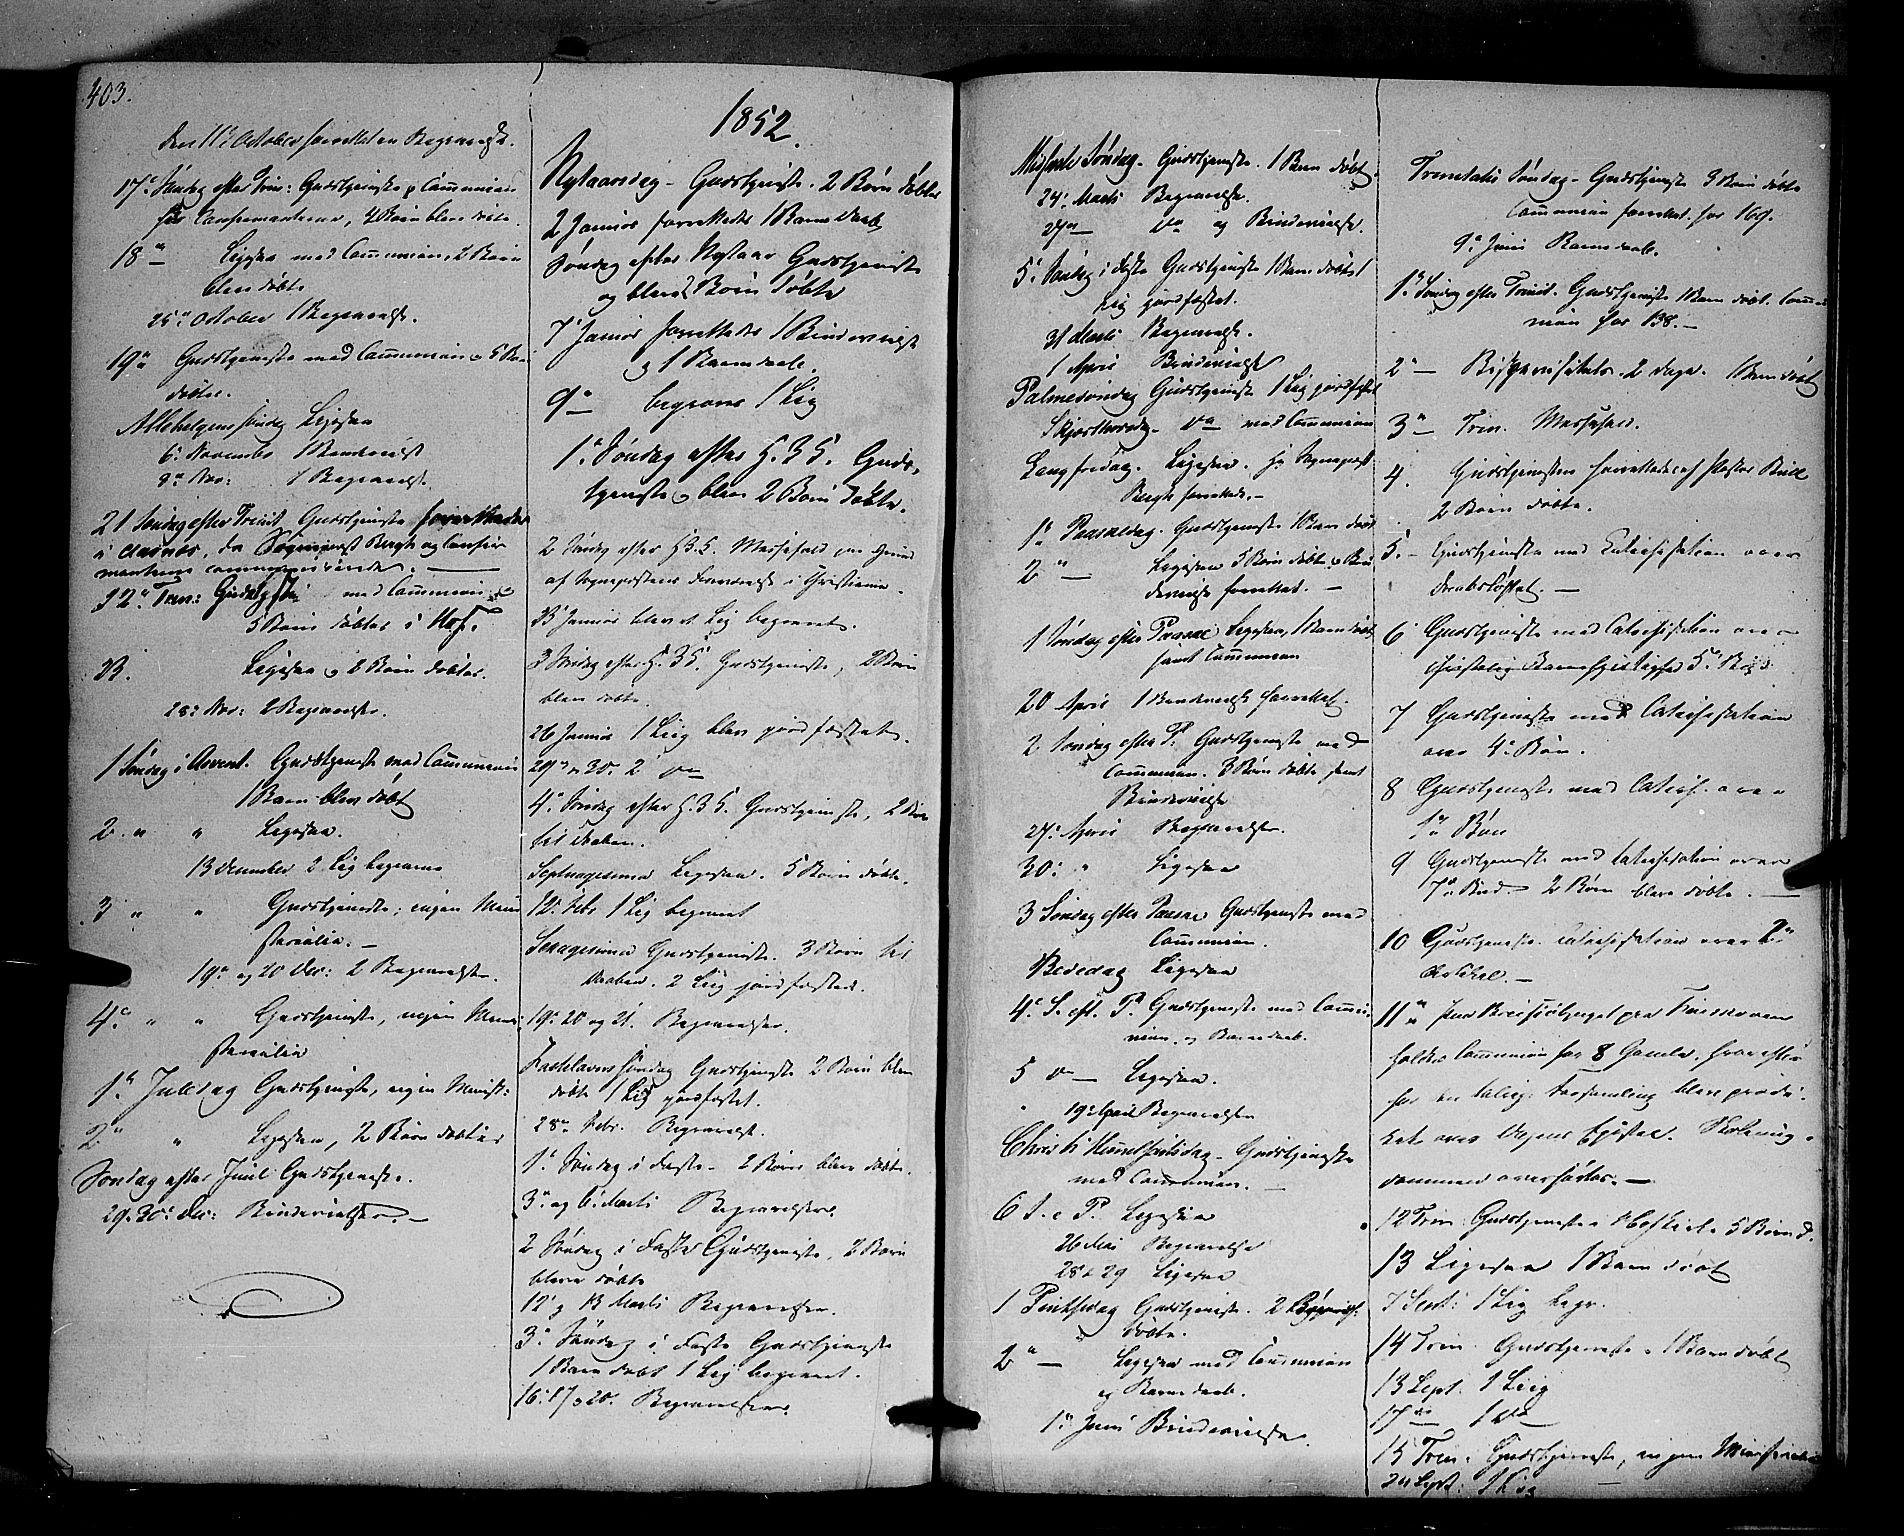 403.
den 11te October forrettet en Begravelse.
17de Søndag efter Trin: Gudstjeneste, Communion
for Confirmanterne, 4 Børn bleve døbte.
18 " — Ligesaa med Communion, 2 Børn
bleve døbte
25de October 1 Begravelse.
19 " Gudstjeneste med Communion, 5 Børn
døbte.
Allehelgens Søndag Ligesaa
6te November 1 Brudevielse
9de Nov: 1 Begravelse.
21 Søndag efter Trinit. Gudstjeneste forrettedes
i Aasnæs, da Sogneprest Bergh og Confir
manterne communicerede.
22 " Trin: Gudstjeneste med Communion
5 Børn døbtes i Hof.
23. Ligesaa 2 Børn døbtes.
28de Nov: 2 Begravelser.
1 Søndag i Advent. Gudstjeneste med Communion
1 Barn blev døbt
2 " " Ligesaa.
13 December 2 Lig begraves
3 " " Gudstjeneste; ingen Mini
sterialia. —
19de og 20 Dec: 2 Begravelser.
4de " " Gudstjeneste, ingen Mini
sterialia
1ste Juledag Gudstjeneste, ingen Minist:
2 " " Ligesaa, 2 Børn døbtes
Søndag efter Juul Gudstjeneste.
29. 30te Dec: Brudevielser. —
1852.
Nytaarsdag — Gudstjeneste. 2 Børn døbte
2 Januar forrettedes 1 Barnedaab
Søndag efter Nytaar Gudstjeneste
og bleve Børn døbte
7 Januar forrettedes 1 Brudevielse
og 1 Barnedaab.
9de begraves 1 Lig
1te Søndag efter H. 3 K. Guds
tjeneste, bleve 2 Børn døbte.
2 Søndag efter H. 3 K. Messefald paa Grund
af Sogneprestens Fraværelse i Christiania.
23 Januar blev et Lig begravet.
3 Søndag efter H. 3 K. Gudstjeneste, 2 Børn
bleve døbte.
26 Januar 1 Liig blev jordfæstet.
29de og 30. 2 do
4de Søndag efter H. 3 K. Gudstjeneste, 2 Børn
til Daaben.
Septuagesima Ligesaa. 5 Børn døbte.
12te Febr 1 Lig begravet
Sexagesima Gudstjeneste. 3 Børn til
Daaben. 2 Liig jordfæstede.
19de 20 og 21. Begravelser.
Fastelavns Søndag Gudstjeneste 2 Børn bleve
døbte 1 Lig jordfæstet.
28de Febr. Begravelse.
1te Søndag i Faste — 2 Børn bleve døbte.
3de og 6te Marts Begravelser.
2 Søndag i Faste Gudstjeneste, 2 Børn
bleve døbte
12te og 13 Marts Begravelser.
3de Søndag i Faste Gudstjeneste
1 Barn døbt 1 Lig begravet.
16. 17 og 20. Begravelser.
Midfaste Søndag — Gudstjeneste. 1 Barn døbt.
24de Marts Begravelse.
27de do og Brudevielse.
5te Søndag i Faste Gudstjeneste 1 Barn døbt 1
Lig jordfæstet.
31 Marts Begravelse.
1 April Brudevielse
Palmesøndag Gudstjeneste 1 Lig jordfæstet
Skjærthorsdag — do med Communion
Langfredag. Ligesaa. Hr Sogneprest
Bergh forrettede. —
1te Paaskedag. Gudstjeneste 1 Barn døbt
2 " — Ligesaa 3 Børn døbte, Bru
devielse forrettet. —
1 Søndag efter Paaske Ligesaa, 1 Barn døbt
samt Communion
20 April 1 Brudevielse forrettet.
2 Søndag efter P: Gudstjeneste med
Communion. 3 Børn døbte samt
Brudevielse
27de April Begravelser.
30: " Ligesaa
3 Søndag efter Paaske Gudstjeneste med
Communion.
Bededag Ligesaa
4de S. eft. P. Gudstjeneste med Commu
nion og Barnedaab.
5 do — Ligesaa.
19de Begravelser
Christi Himmelfartsdag — Gudstjeneste
med Communion. —
6 S. e P. Ligesaa
26 Mai Begravelse
28 & 29 Ligesaa
1 Pintsedag Gudstjeneste. 2
døbte.
2 " — Ligesaa med Communion
og Barnedaab.
1te Juni Brudevielse.
Trinitatis Søndag — Gudstjeneste 3 Børn døbte
Communion forrettet for 169.
9de Juni Barnedaab.
1te Søndag efter Trinit. Gudstjeneste 1 Barn døbt. Commu
nion for 138. —
2 " — Bispevisitats. 2 dage. 1 Barn døbt
3 " — Trin. Messefald.
4. Gudstjenesten forrettedes af Pastor
2 Børn døbte.
5. — Gudstjeneste med Catechisation over
Daabsløftet. —
6 Gudstjeneste med Catechisation over
5te Bøn
7 Gudstjeneste med Catechisation
over 4de Bøn.
8 Gudstjeneste med Catech. over
1te Bøn
9 Gudstjeneste med Catechisation over
7de Bud. 2 Børn bleve døbte. —
10 Gudstjeneste. Catechisation over 2den
Artikel. —
11 " paa Finskoven
holdes Communion for 8 Gamle, hvorefter
for en talrig Forsamling blev prædi
ket over Dagens Epistel.
12 Trin: Gudstjeneste 5 Børn d.
13 Ligesaa 1 Barn døbt
7 Sept: 1 Lig begr.
14 Trin. Gudstjeneste 1 Barn døbt
13 Sept. 1 Liig
17de 1 do
15 Trin. Gudstjeneste, ingen Ministerialia
24 Sept: 1 Lig